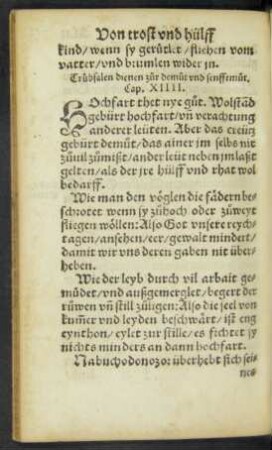 Von trost vnd hülff
kind/wenn sy gerütlet/fliehen vom
vatter/vnd brumlen wider jn.
Trübsalen dienen zůr demůt vnd senfftmůt.
Cap. XIIII.
HOchfart thet nye gůt. Wolstãd
gebürt hochfart/vñ verachtung
anderer leüten. Aber das creütz
gebürt demůt/das ainer jm selbs nit
zůuil zůmißt/ander leüt neben jm laßt
gelten/als der jre hülff vnd rhat wol
bedarff.
Wie man den vöglen die fädern be-
schrotet wenn sy zůhoch oder zůweyt
fliegen wöllen: Also Got vnsere reych-
tagen/ansehen/eer/gewalt mindert/
damit wir vns deren gaben nit über-
heben.
Wie der leyb durch vil arbait ge-
müdet/vnd außgemerglet/begert der
růwen vñ still züligen: Also die seel von
kum̃er vnd leyden beschwärt/ist eng
zynthon/eylet zur stille/es fichtet sy
nichts minders an dann hochfart.
Nabuchodonozor überhebt sich sei-
nes